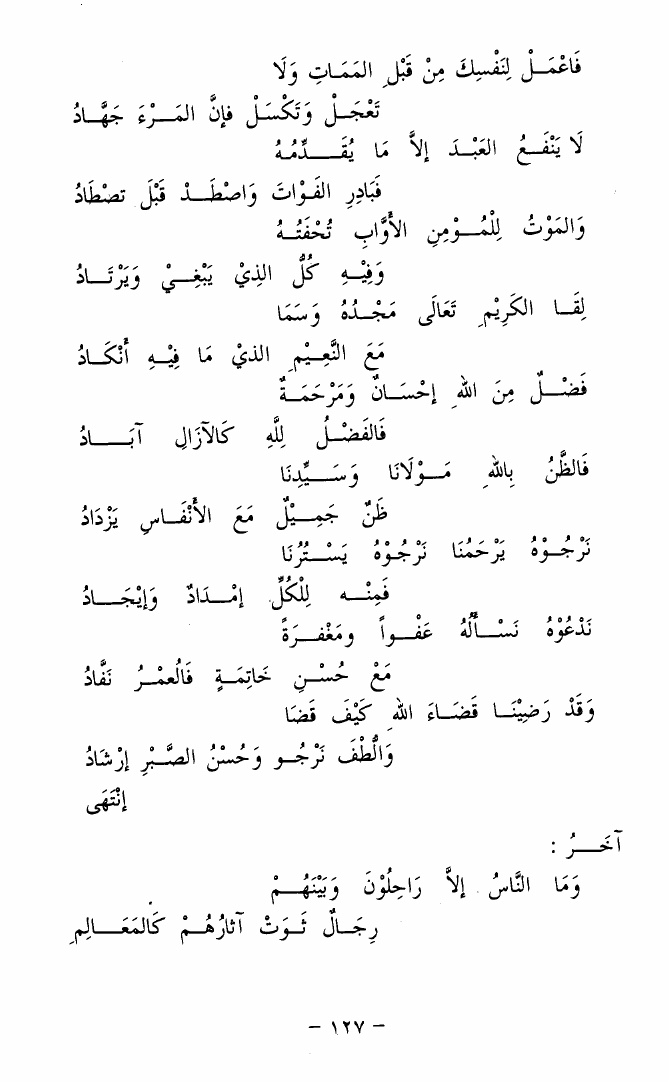 فَاعْمَلْ لِنَفْسِكَ مِنْ قَبْلِ المَمَاتِ وَلَا
تَعْجَلْ وَتَكْسَلْ فإنَّ المَرْءَ جَهَّادُ
لَا يَنْفَعُ العَبْدَ إلاَّ مَا يُقَدِّمُهُ
فَبَادِرِ الفَوْاتَ وَاصْطَدْ قَبْلَ تصْطَادُ
وَالمَوْتُ لِلْمُؤْمِنِ الأَوَّابِ تُحْفَتُهُ
وَفِيْهِ كُلُّ الذِيْ يَبْغِيْ وَيَرْتَادُ
لِقَا الكَرِيْمِ تَعَالَى مَجْدُهُ وَسَمَا
مَعَ النَّعِيْمِ الذيْ مَا فِيْهِ أَنْكَادُ
فَضْلٌ مِنَ اللهِ إحْسَانٌ وَمَرْحَمَةٌ
فَالفَضْلُ لِلَّهِ كَالآزَالِ آبَادُ
فَالظَّنُ بِاللهِ مَوْلَانَا وَسَيِّدِنَا
ظَنٌ جَمِيْلٌ مَعَ الأنْفَاسِ يَزْدَادُ
نَرْجُوْهُ يَرْحَمُنَا نَرْجُوْهُ يَسْتُرُنَا
فَمِنْه لِلْكُلِّ إمْدَادٌ وَإيْجَادُ
نَدْعُوْهُ نَسْأَلُهُ عَفْواً ومَغْفِرَةً
مَعْ حُسْنِ خَاتِمَةٍ فَالُعمْرُ نَفَّادُ
وَقَدْ رَضِيْنَا قَضَاءَ اللهِ كَيْفَ قَضَا
وَالُّطْفَ نَرْجُو وَحُسْنُ الصَّبْرِ إرْشَادُ
إنْتَهَى
آخَرُ :
وَمَا النَّاسُ إلاَّ رَاحِلُوْنَ وَبَيْنَهُمْ
رِجَالٌ ثَوَتْ آثارُهُمْ كَالمَعَالِمِ
- ١٢٧ -